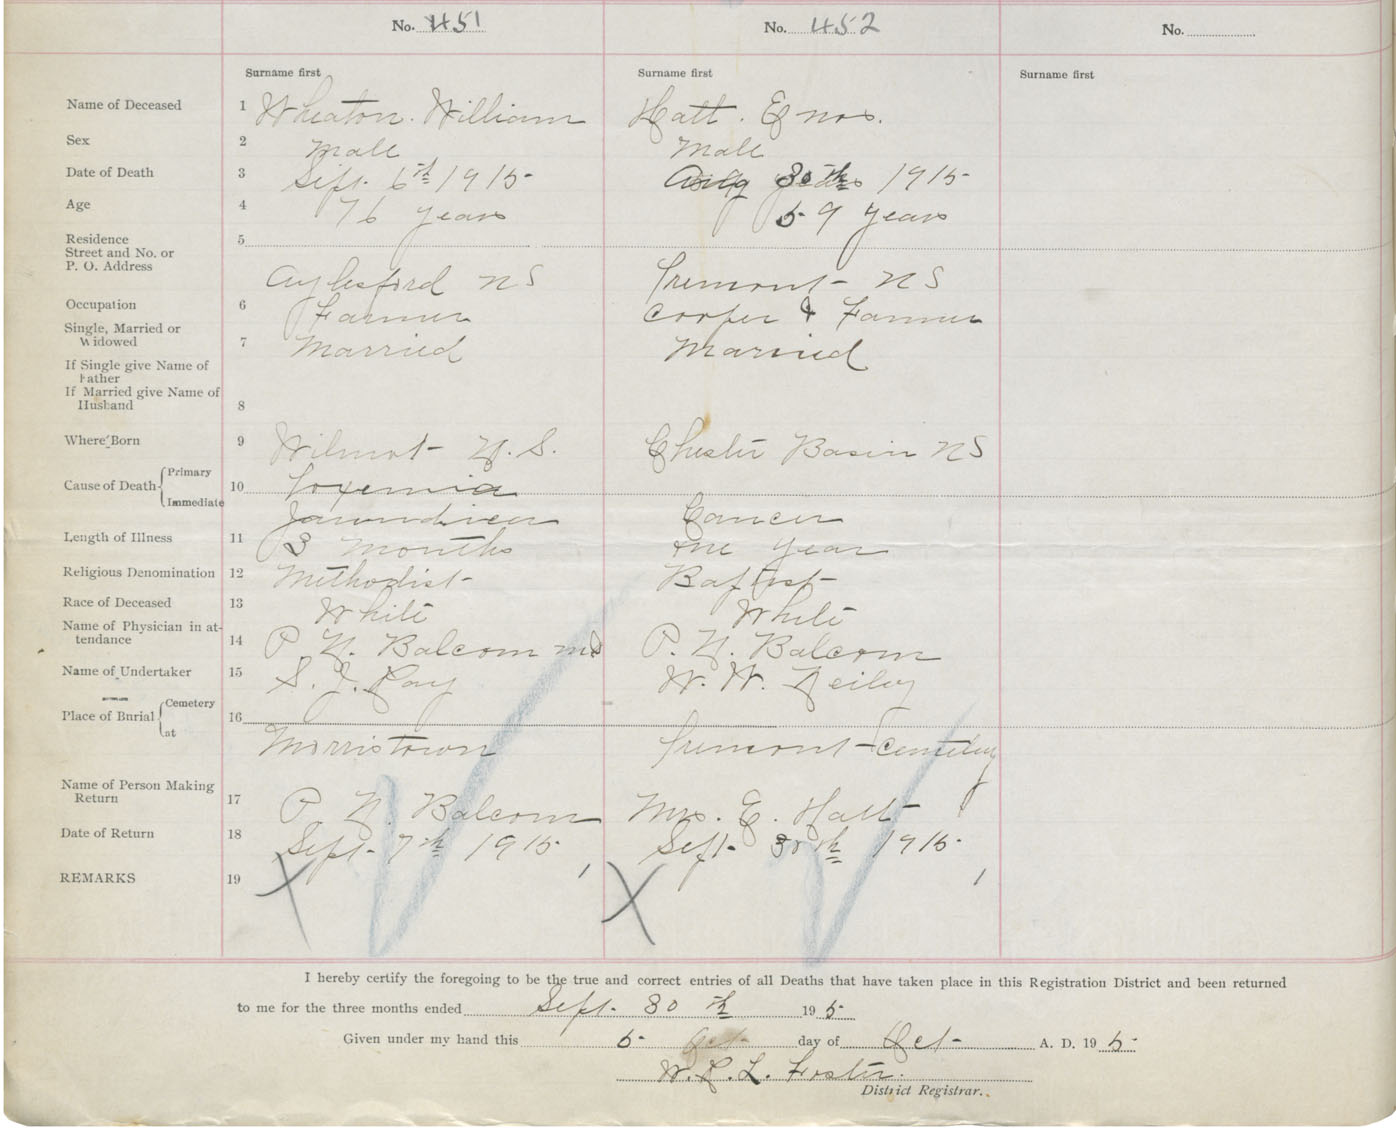 No. 451 No. 452 No.
Surname first Surname first Surname first
Name of Deceased 1 Wheaton. William Hatt. Enos.
Sex 2 Male Male
Date of Death 3 Sept. 6th 1915 Aug 30th 1915
Age 4 76 years 59 years
Residence 5
Street and No. or
P. O. Address
Aylesford NS Tremont- NS
Occupation 6 Farmer Cooper & Farmer
Single, Married or
Widowed 7 Married Married
If Single give Name of
Father
If Married give Name of
Husband 8
Where Born 9 Wilmot- N.S. Chester Basin NS
Cause of Death Primary 10 Toxemia
Immediate Jaundice Cancer
Length of Illness 11 3 Months one year
Religious Denomination 12 Methodist- Baptist-
Race of Deceased 13 White White
Name of Physician in at-
tendance 14 P. N. Balcom md P. N. Balcom
Name of Undertaker 15 S. J. Ray W. W. Neily
Place of Burial Cemetery 16
at Morristown Tremont-Cemetery
Name of Person Making
Return 17 P. N. Balcom Mrs. E. Hatt-
Date of Return 18 Sept- 7th 1915. Sept- 30th 1915.
REMARKS 19 X 1 X 1
I hereby certify the foregoing to be the true and correct entries of all Deaths that have taken place in this Registration District and been returned
to me for the three months ended Sept. 30th 19 5
Given under my hand this 5 day of Oct- A. D. 19 5
W. L. Foster.
District Registrar.